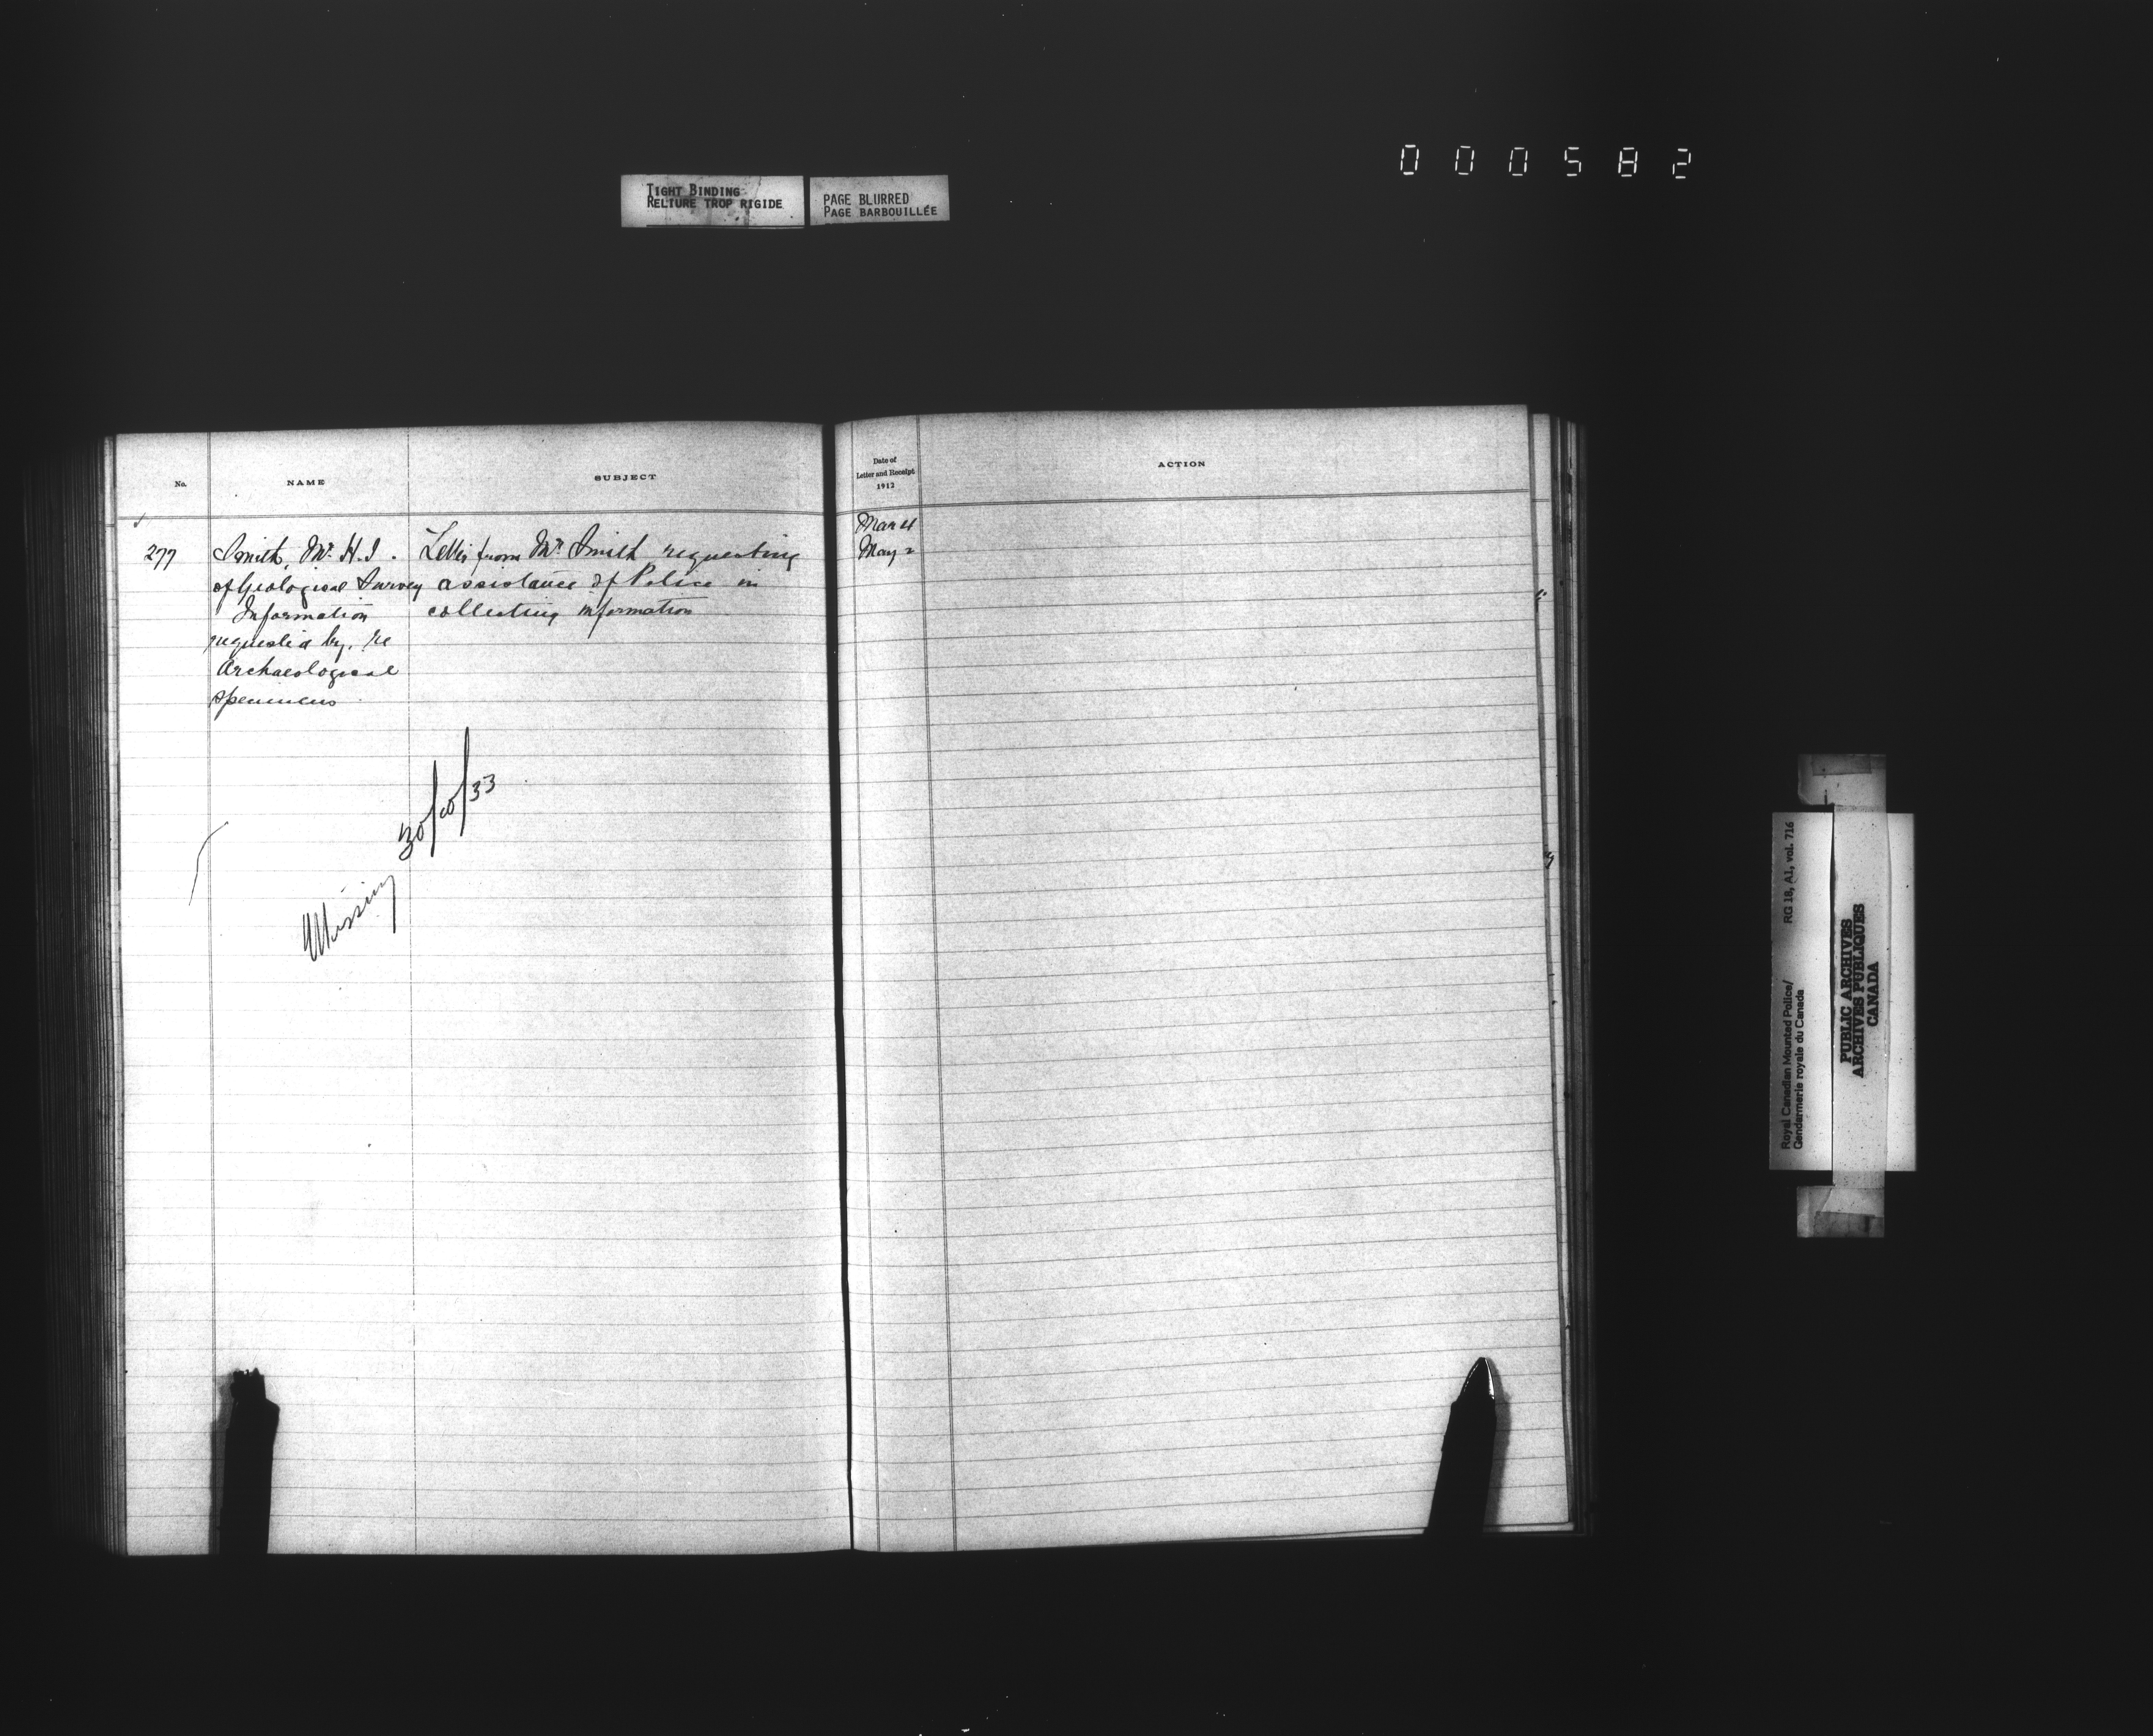 000582
TIGHT BINDING
RELIURE TROP RIGIDE
PAGE BLURRED
PAGE BARBOUILLÉE
No. NAME SUBJECT
277 Smith, Mr. H.I. Letter from Mr. Smith requesting
of Geological Survey assistance of Police in
Information collecting information
requested by, re
Archaeological
specimens
Missing 30/10/33
Date of
Letter and Receipt
1912
ACTION
Mar 4
May 2
Royal Canadian Mounted Police/ RG 18, A1, vol. 716
Gendarmerie royale du Canada
PUBLIC ARCHIVES
ARCHIVES PUBLIQUES
CANADA